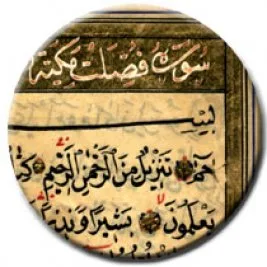 سورة فصلت مكية
بسم
حم تنزيل من الرحمن الرحيم
يعلمون بشيرا و